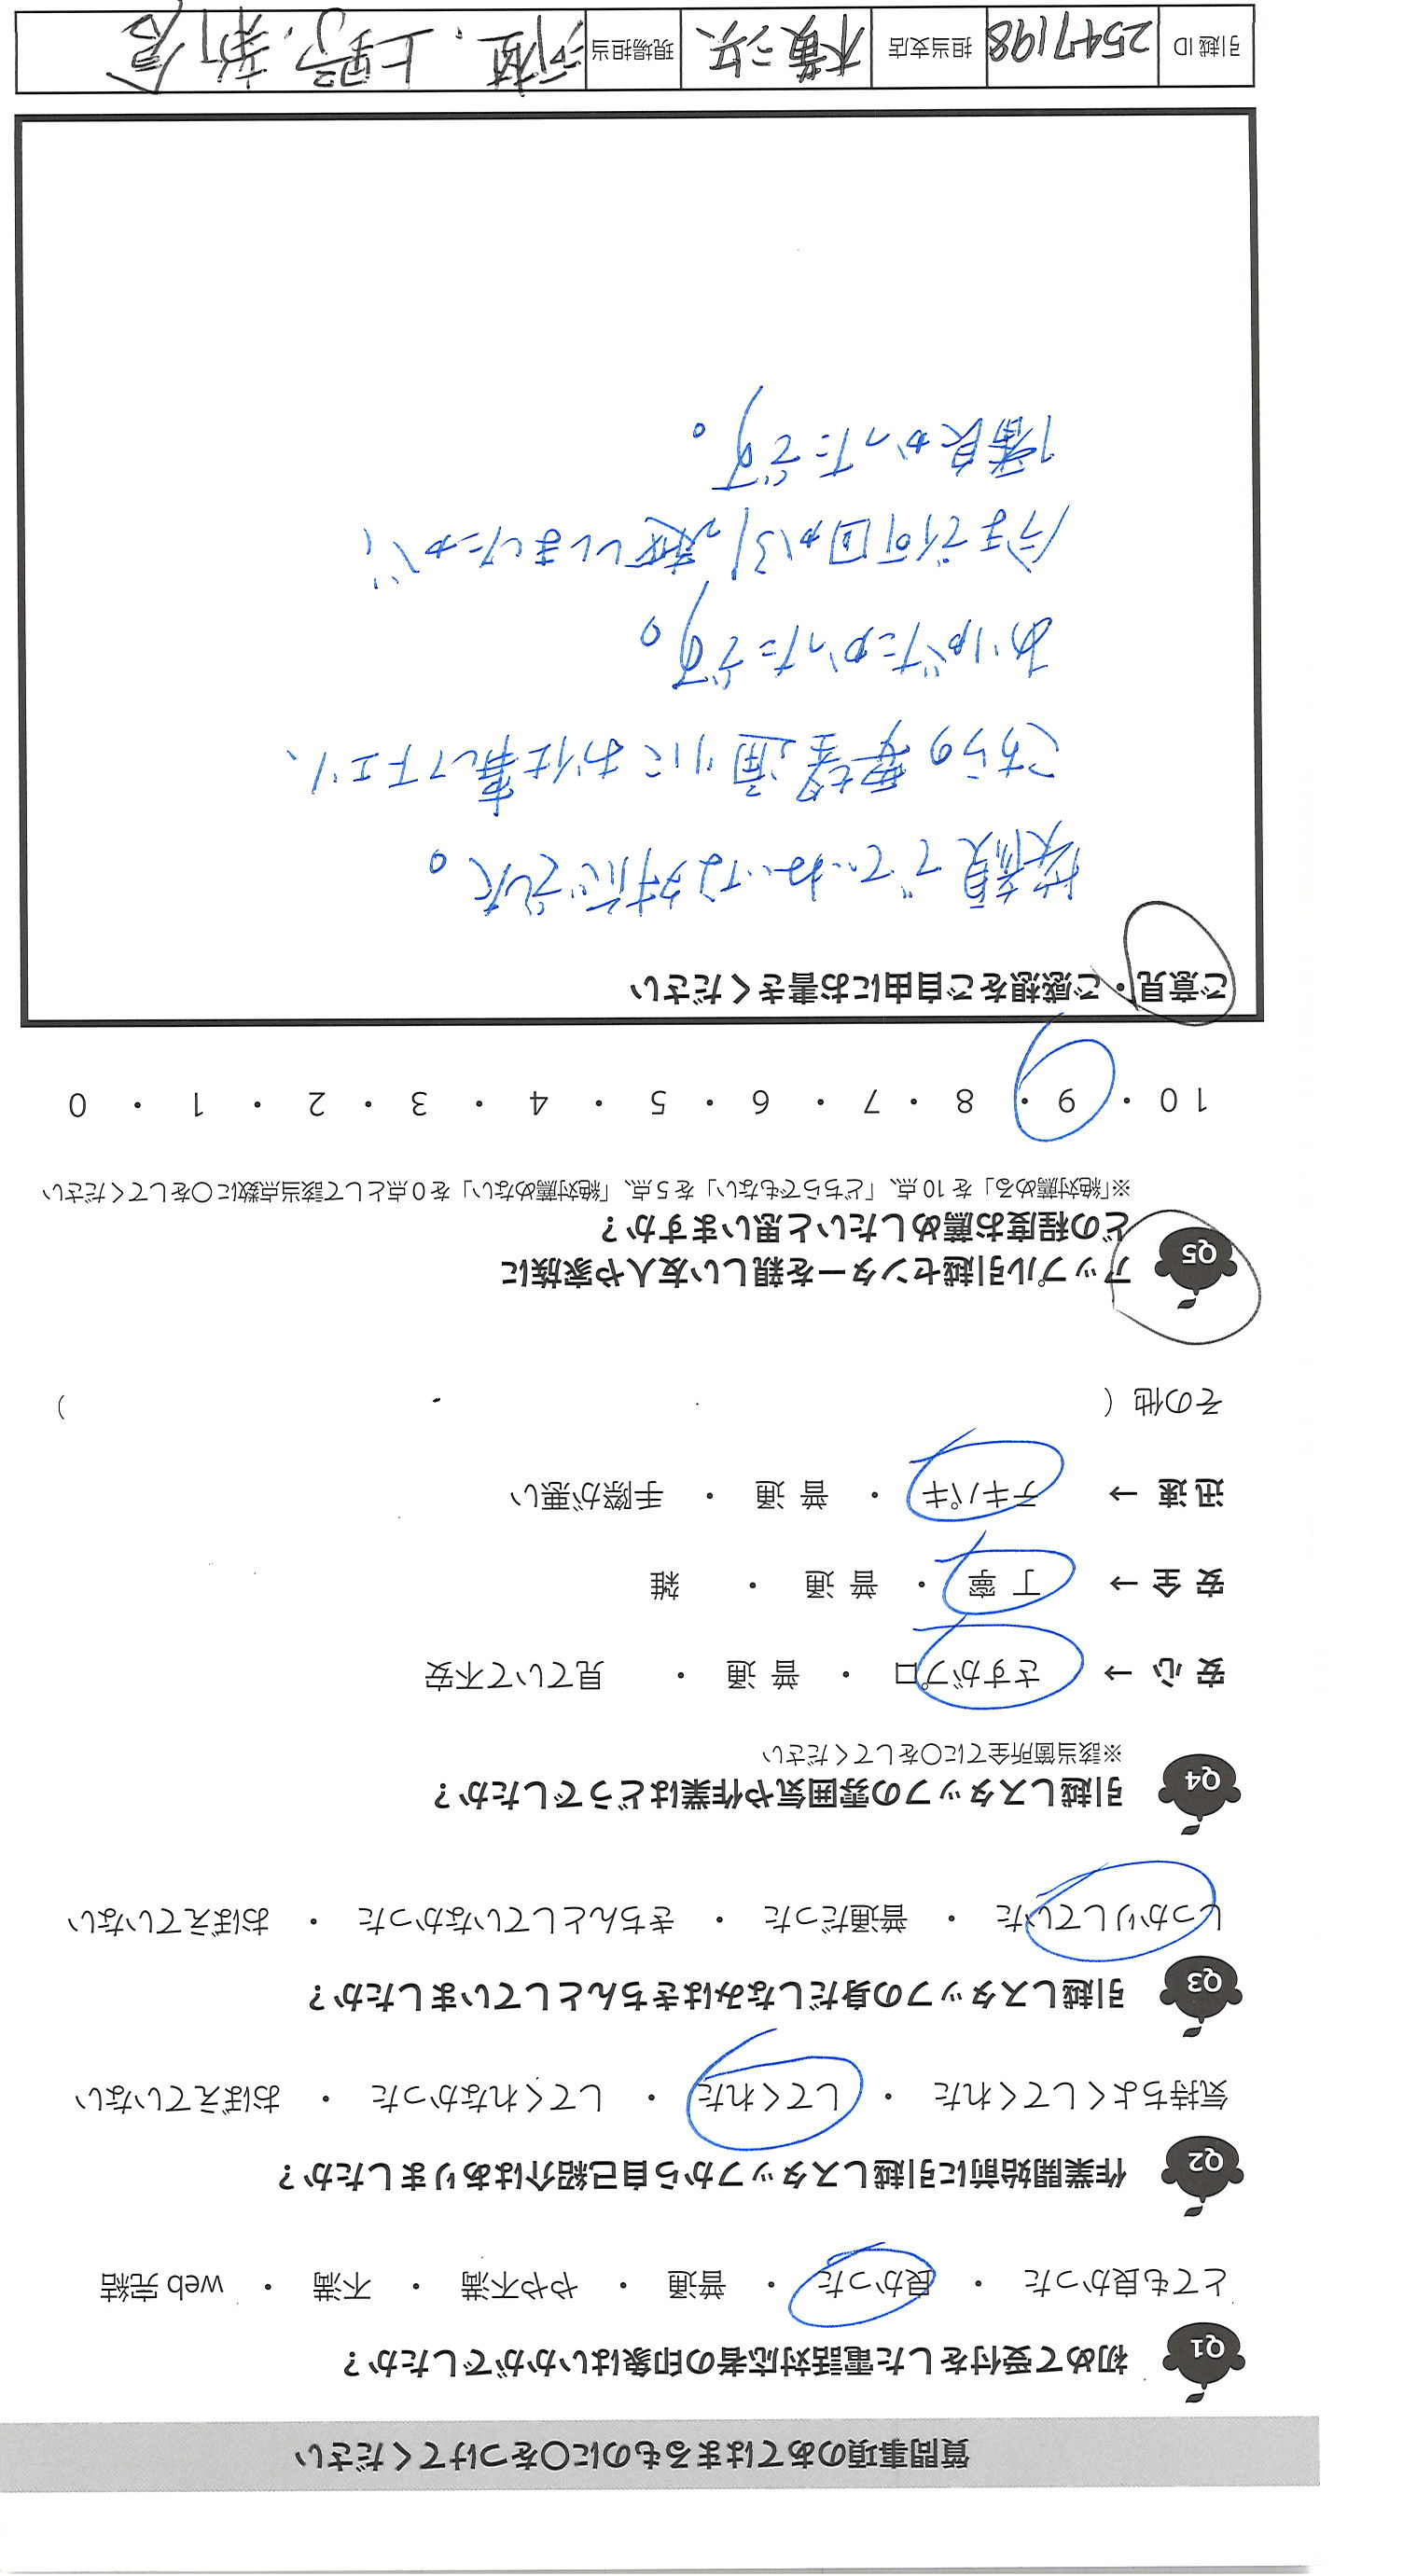 質問事項のあてはまるものに○をつけてください
Q1 初めて受付をした電話対応者の印象はいかがでしたか？
とても良かった ・ 良かった ・ 普通 ・ やや不満 ・ 不満 ・ web 完結
Q2 作業開始前に引越しスタッフから自己紹介はありましたか？
気持ちよくしてくれた ・ してくれた ・ してくれなかった ・ おぼえていない
Q3 引越しスタッフの身だしなみはきちんとしていましたか？
しっかりしていた ・ 普通だった ・ きちんとしていなかった ・ おぼえていない
Q4 引越しスタッフの雰囲気や作業はどうでしたか？
※該当箇所全てに○をしてください
安 心 → さすがプロ ・ 普 通 ・ 見ていて不安
安 全 → 丁 寧 ・ 普 通 ・ 雑
迅 速 → テキパキ ・ 普 通 ・ 手際が悪い
その他 （ ）
Q5 アップル引越センターを親しい友人や家族に
どの程度お薦めしたいと思いますか？
※「絶対薦める」を 10 点、「どちらでもない」を 5 点、「絶対薦めない」を 0 点として該当点数に○をしてください
10 ・ 9 ・ 8 ・ 7 ・ 6 ・ 5 ・ 4 ・ 3 ・ 2 ・ 1 ・ 0
ご意見・ご感想をご自由にお書きください
笑顔でていねいな対応でした。
こちらの要望通りにお仕事して下さり、
ありがたかったです。
今まで何回か引っ越ししましたが、
1番良かったです。
引越 ID 2547198 担当支店 横浜 現場担当 河植、上野、新倉